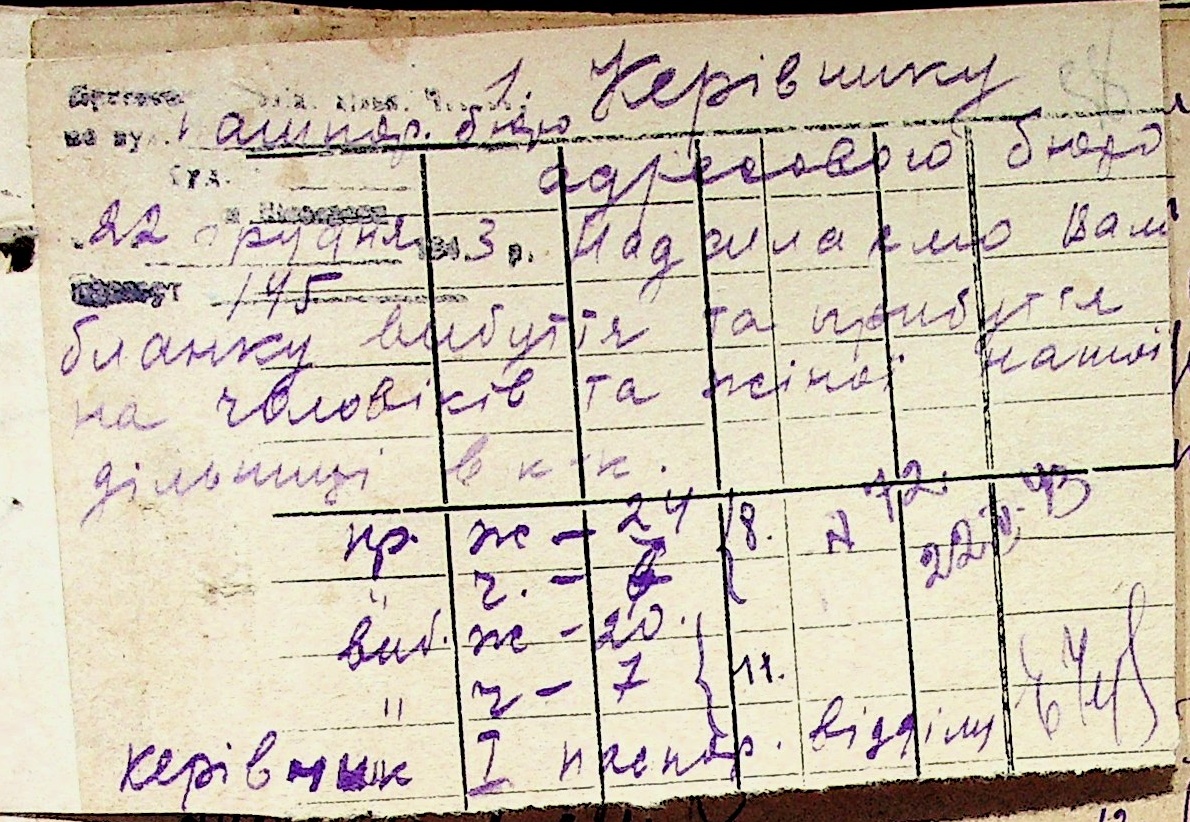 1. Керівнику
ашпор. бюро
адресового бюро
22 грудня 1943 р. Надсилаємо Вам
145
бланку вибуття та прибуття
на чоловіків та жінок нашої
дільниці в к-к.
пр. ж - 24
ч. - 6 } 8.
72.
22
43
виб. ж - 20.
" ч - 7 } 11.
керівник I паспор. відділу